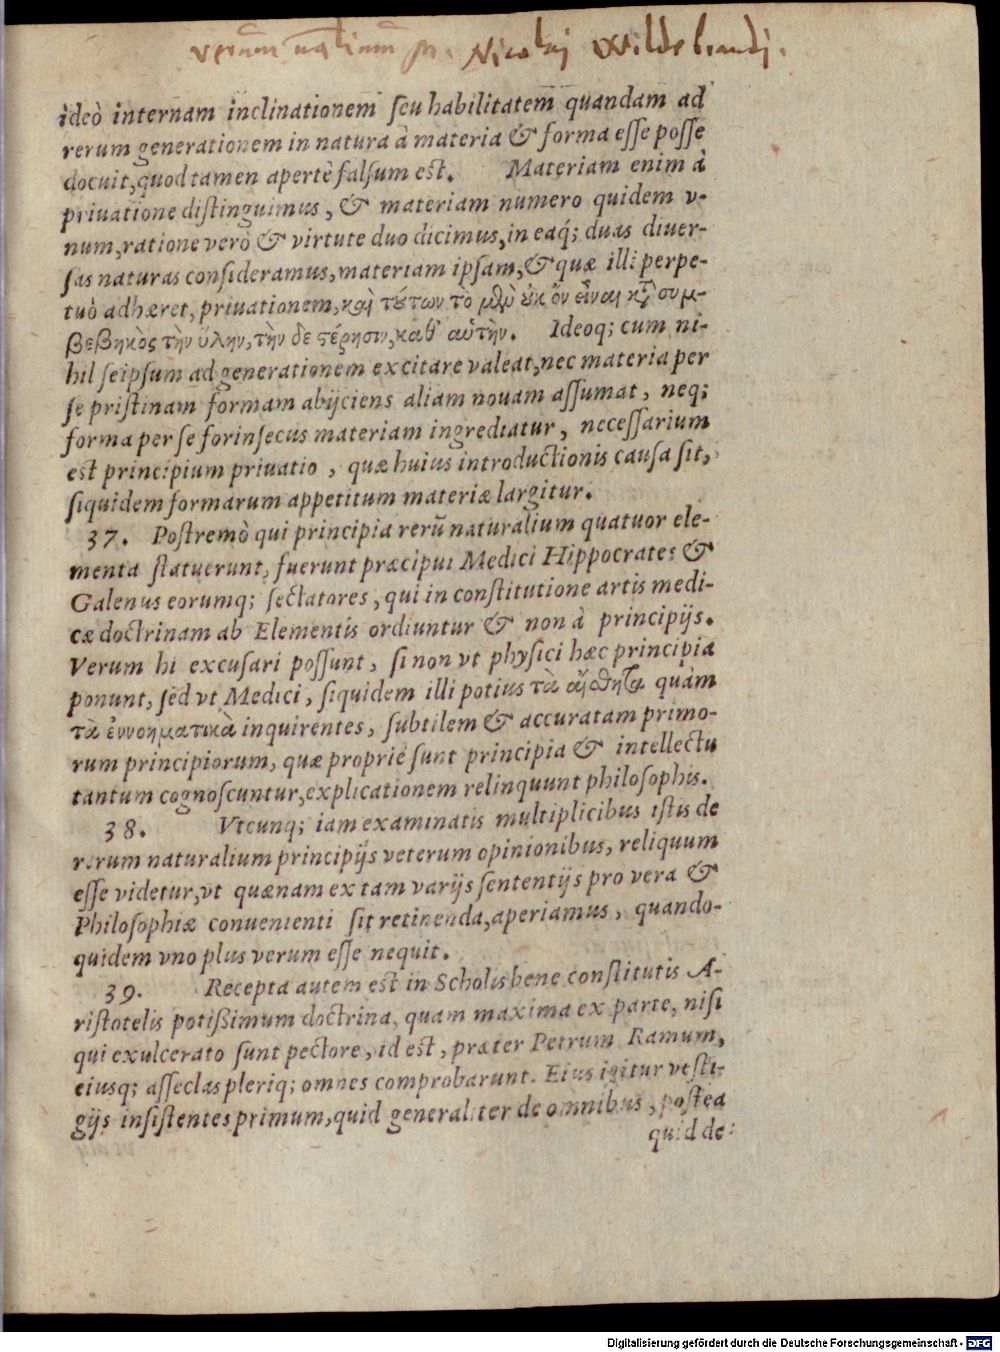 rerum nalium m. Nicolaj Wildebrandj.
ideò internam inclinationem ſeu habilitatem quandam ad
rerum generationem in natura à materia & forma eſſe poſſe
docuit, quod tamen apertè falſum est. Materiam enim à
priuatione diſtinguimus, & materiam numero quidem v-
num, ratione verò & virtute duo dicimus, in eaq́; duas diuer-
ſas naturas conſideramus, materiam ipſam, & quæ illi perpe-
tuò adhæret, priuationem, καὶ τούτων τὸ μὲν οὐκ ὂν εἶναι κτ̃ συμ-
βεβηκὸς τὴν ὕλην, τὴν δε στέρησιν, καθ' αὑτὴν. Ideoq; cum ni-
hil ſeipſum ad generationem excitare valeat, nec materia per
ſe priſtinam formam abijciens aliam nouam aſſumat, neq;
forma per ſe forinſecus materiam ingrediatur, neceſſarium
est principium priuatio, quæ huius introductionis cauſa ſit,
ſiquidem formarum appetitum materiæ largitur.
37. Poſtremò qui principia rerũ naturalium quatuor ele-
menta ſtatuerunt, fuerunt præcipui Medici Hippocrates &
Galenus eorumq; ſectatores, qui in conſtitutione artis medi-
cæ doctrinam ab Elementis ordiuntur & non à principijs.
Verum hi excuſari poſſunt, ſi non vt phyſici hæc principia
ponunt, ſed vt Medici, ſiquidem illi potius τὰ αἰσθητὰ quàm
τὰ ἐννοηματικὰ inquirentes, ſubtilem & accuratam primo-
rum principiorum, quæ propriè ſunt principia & intellectu
tantum cognoſcuntur, explicationem relinquunt philoſophis.
38. Vtcunq; iam examinatis multiplicibus iſtis de
rerum naturalium principijs veterum opinionibus, reliquum
eſſe videtur, vt quænam ex tam varijs ſententijs pro vera &
Philoſophiæ conuenienti ſit retinenda, aperiamus, quando-
quidem vno plus verum eſſe nequit.
39. Recepta autem est in Scholis bene conſtitutis A-
riſtotelis potiſſimum doctrina, quam maxima ex parte, niſi
qui exulcerato ſunt pectore, id est, præter Petrum Ramum,
eiusq; aſſeclas pleriq; omnes comprobarunt. Eius igitur veſti-
gijs inſiſtentes primum, quid generaliter de omnibus, poſtea
quid de
Digitalisierung gefördert durch die Deutsche Forschungsgemeinschaft - DFG